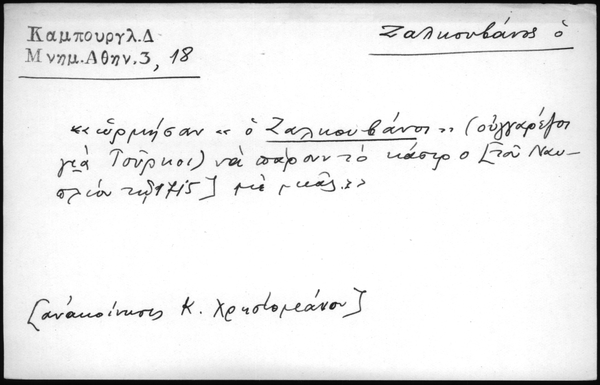 Καμπουργλ.Δ
Μνημ.Αθην.3, 18
Ζαλκουβάνος ὁ
«ὥρμησαν « ὁ Ζαλκουβάνοι » (οὑγγαρέζοι
γιά Τοῦρκοι) νὰ πάρουν τὸ κάστρο [τοῦ Ναυ-
πλίου τῷ 1715] μὲ μιᾶς.»
[ἀνακοίνησις Κ. Χρηστομάνου]